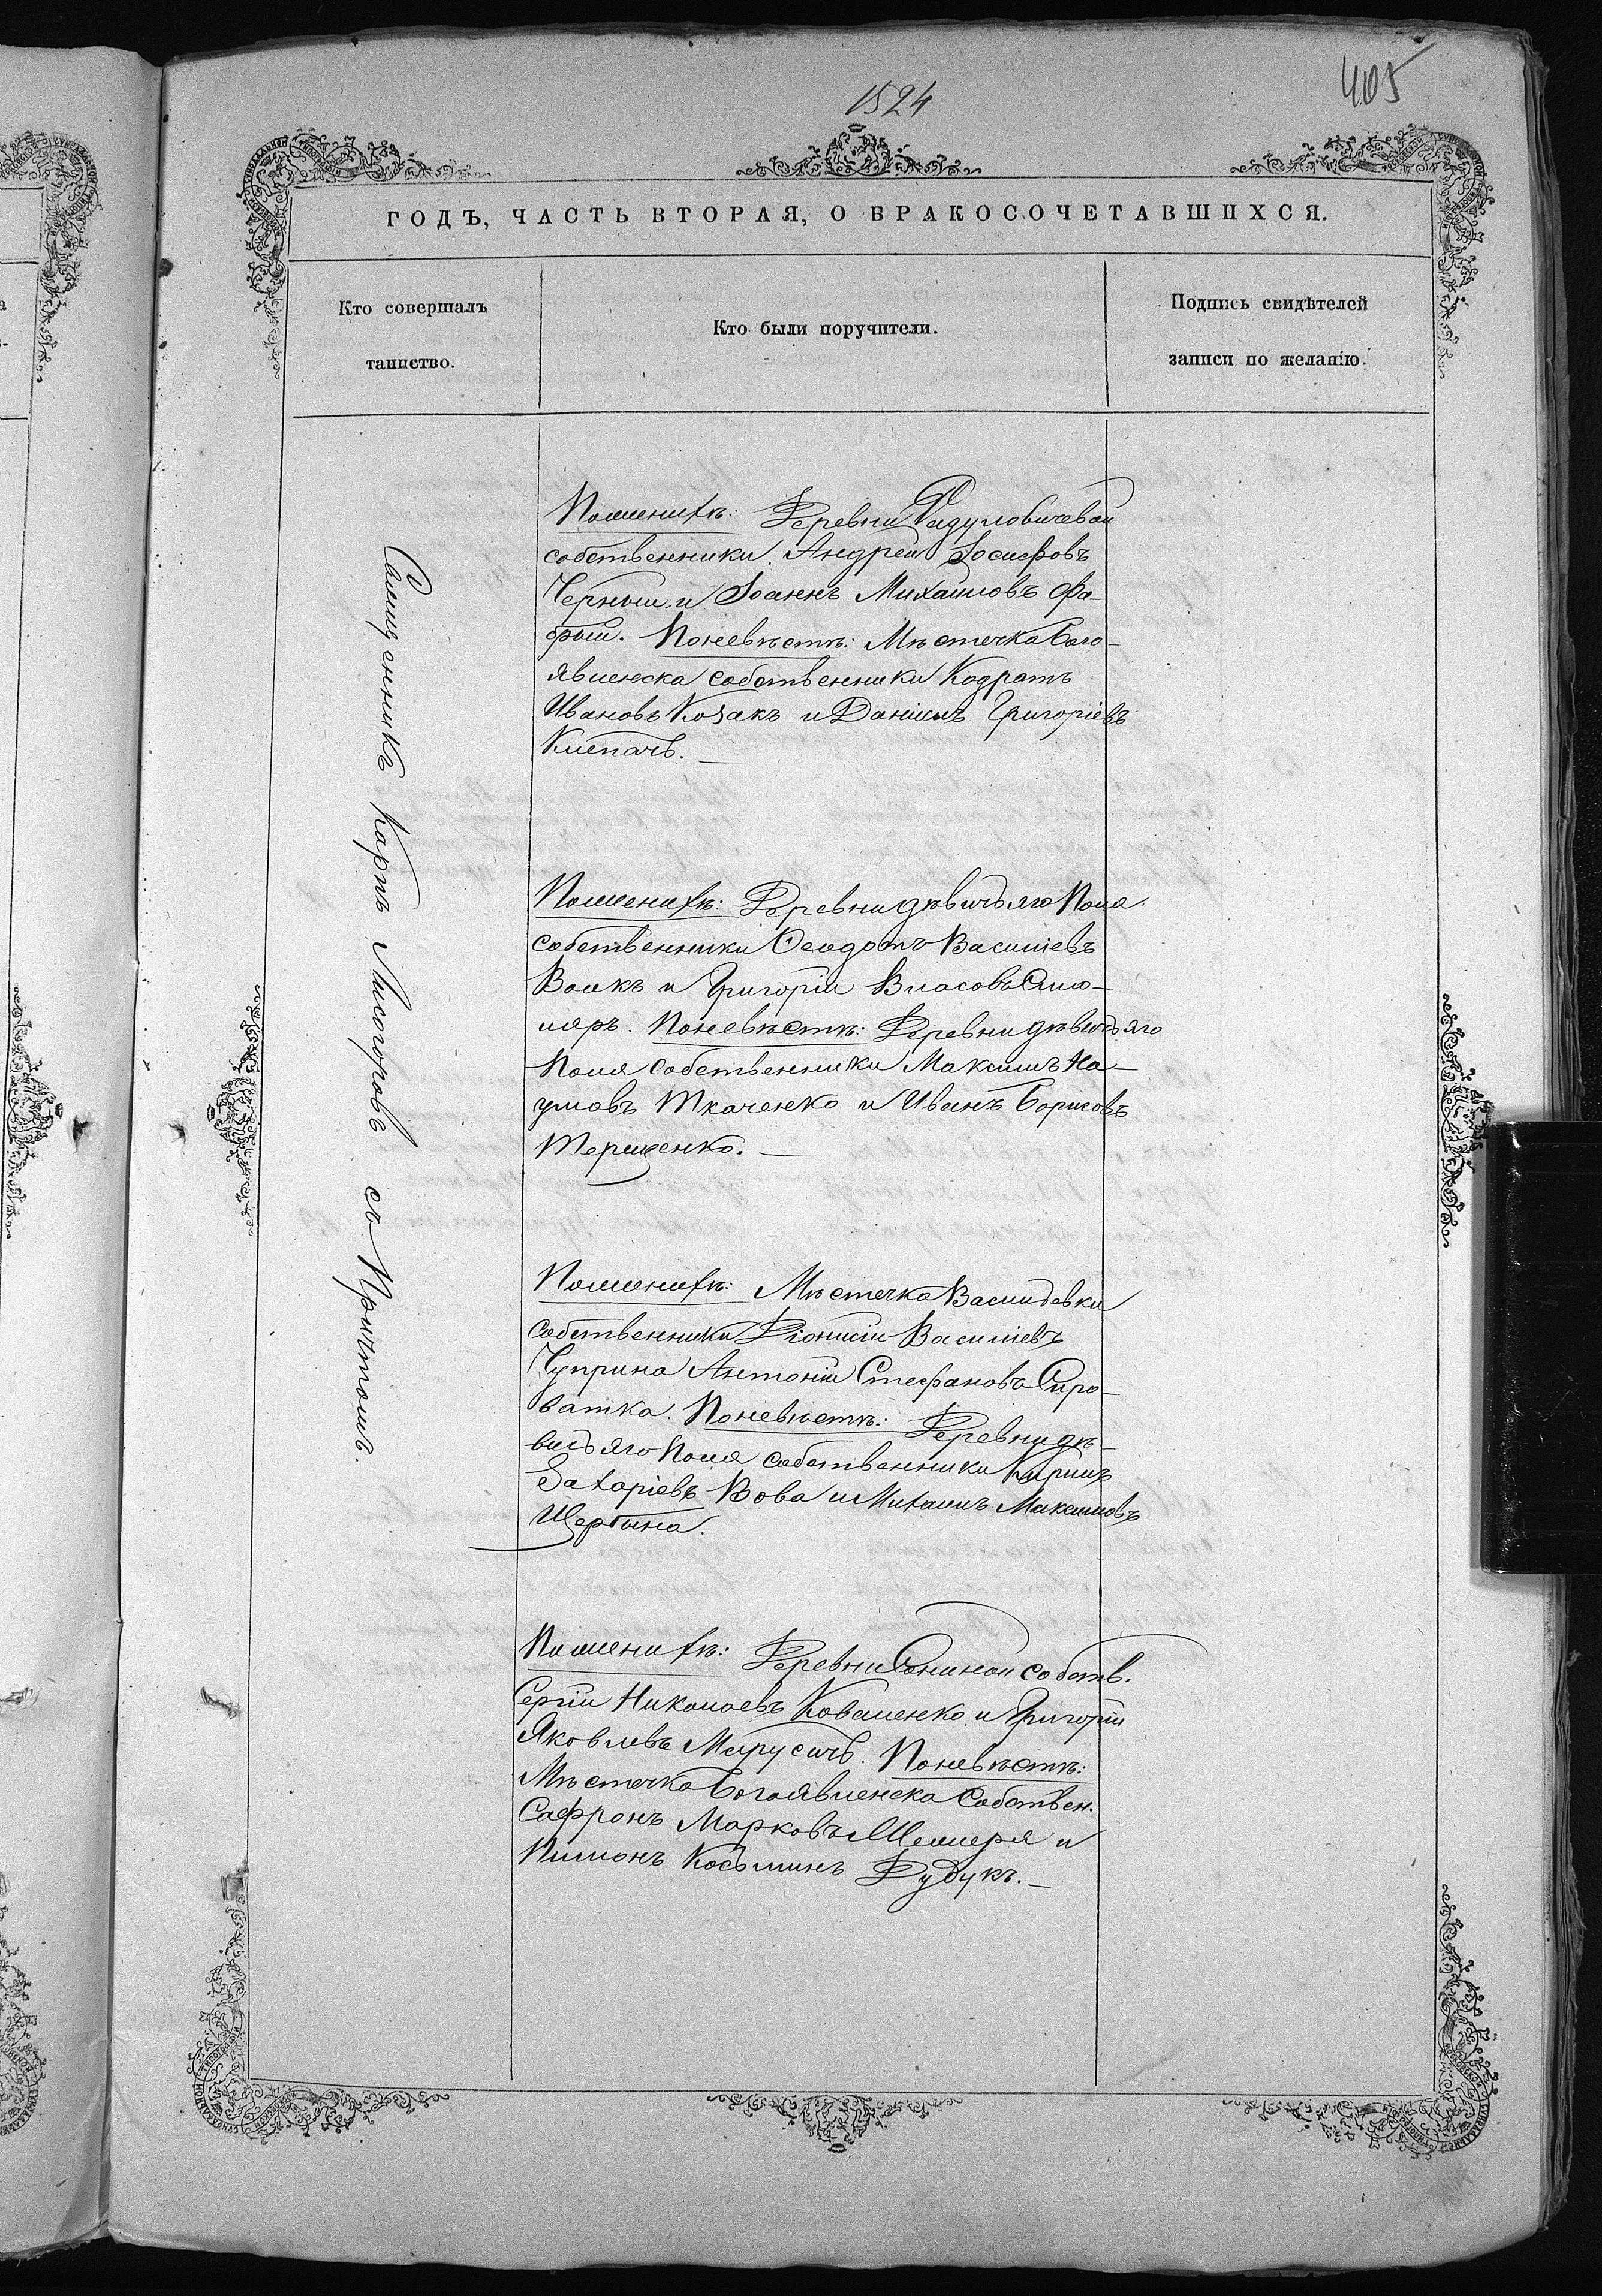 1524
405
ГОДЪ, ЧАСТЬ ВТОРАЯ, О БРАКОСОЧЕТАВШИХСЯ.
Кто совершалъ
таинство.
Кто были поручители.
Подпись свидѣтелей
записи по желанію.
Священникъ Карпъ Лисогоровъ съ Причтомъ.
По женихѣ: Деревни Радуловичевой
собственники Андрей Іосифовъ
Черный и Іоаннъ Михаиловъ Фа-
брый. По невѣстѣ: Мѣстечка Бого-
явленска собственники Кодратъ
Ивановъ Козакъ и Даніилъ Григоріевъ
Клепачъ.
По женихѣ: Деревни дѣвичьяго Поля
собственники Ѳеодотъ Василіевъ
Волкъ и Григорій Власовъ
По невѣстѣ: Деревни дѣвичьяго
Поля собственники Максимъ На-
умовъ Ткаченко и Иванъ Борисовъ
Терещенко.
По женихѣ: Мѣстечка Василовки
собственники Діонисій Василіевъ
Чуприна Антоній Стефановъ Сиро-
ватка. По невѣстѣ: Деревни дѣ-
вичьяго Поля собственники Кирилъ
Захаріевъ Вова и Михаилъ Максимовъ
Щербина.
По женихѣ: Деревни собств.
Сергій Николаевъ Коваленко и Григорій
Яковлевъ Марусичъ. По невѣстѣ:
Мѣстечка Богоявленска Собствен.
Сафронъ Марковъ Шемеря и
Пимонъ Косьминъ Дудукъ.